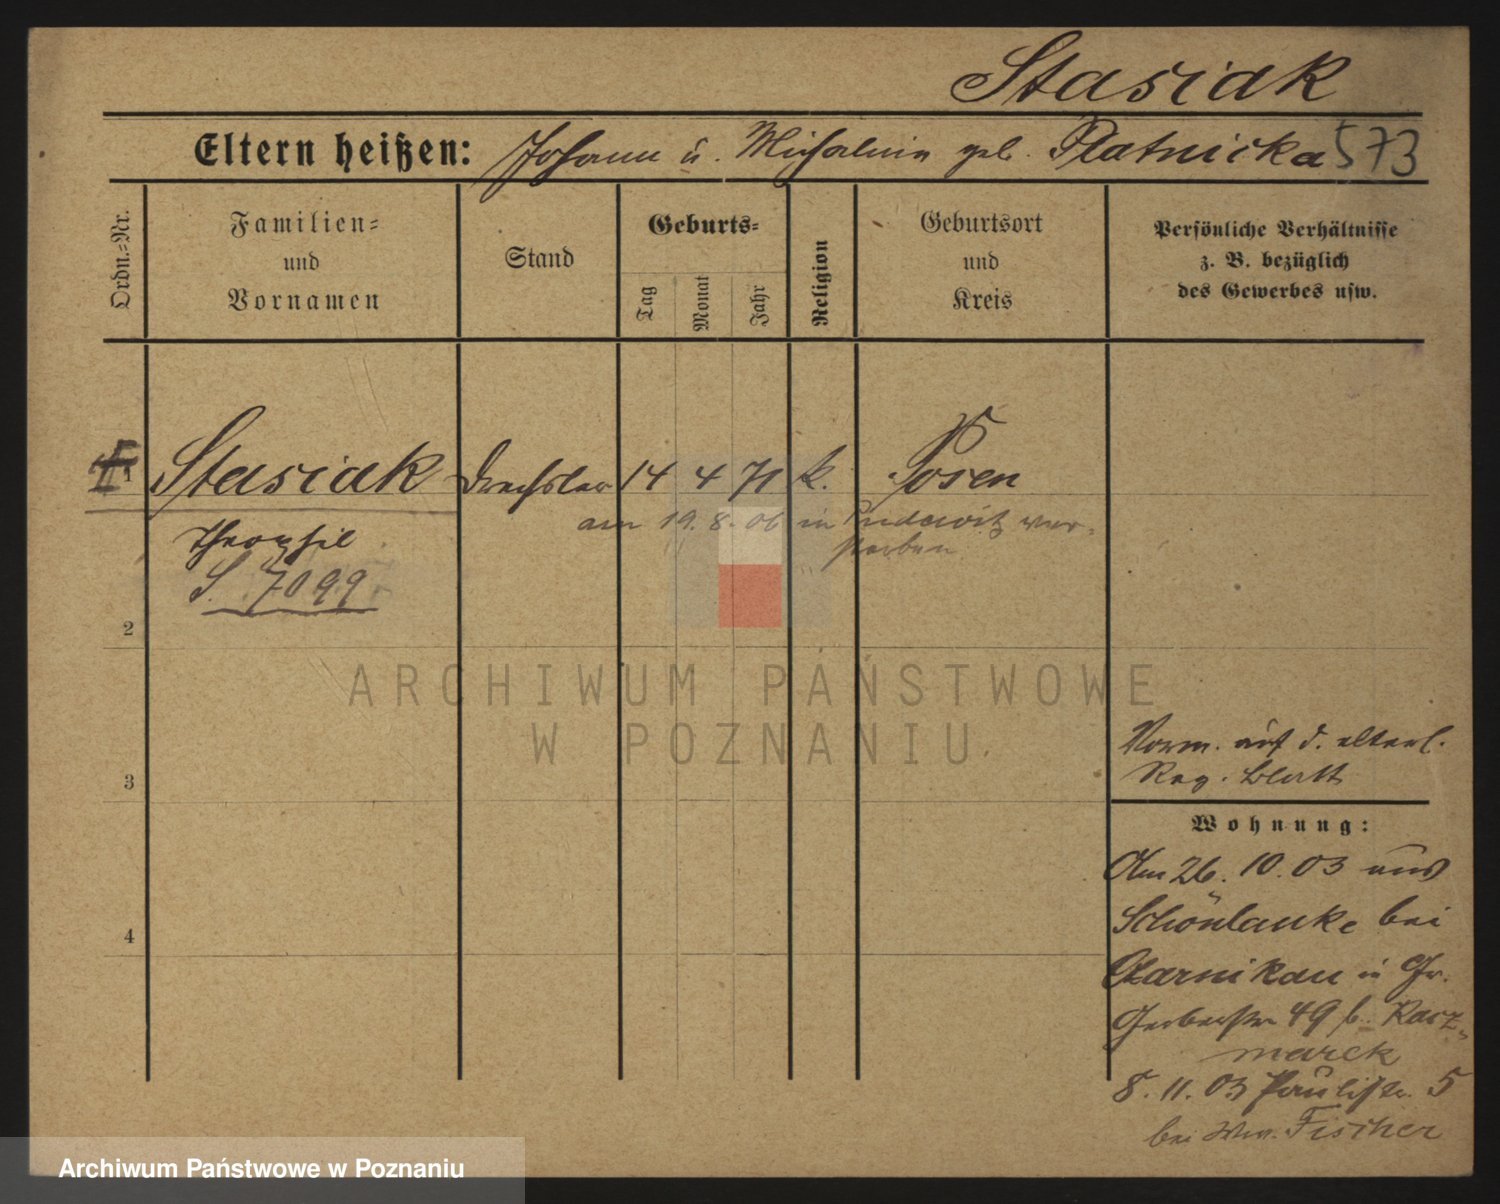 Stasiak
Eltern heißen: Johann u. Michalina geb. Platnicka 573
Ordn.-Nr.
Familien-
und
Vornamen
Stand
Geburts-
Tag
Monat
Jahr
Religion
Geburtsort
und
Kreis
Persönliche Verhältnisse
z. B. bezüglich
des Gewerbes usw.
1 Stasiak Drechsler 14 4 71 k. Posen
am 19. 8. 06 in Pudewitz ver-
storben
Theophil
S. 7099
2
3
4
Verm. auf d. elterl.
Reg. Blatt
Wohnung:
Am 26. 10. 03 aus
Schönlanke bei
Czarnikau in Gr.
Gerberstr 49 b. Kacz-
marek
8. 11. 03 Paulistr. 5
bei Ww. Fischer
ARCHIWUM PAŃSTWOWE
W POZNANIU
Archiwum Państwowe w Poznaniu